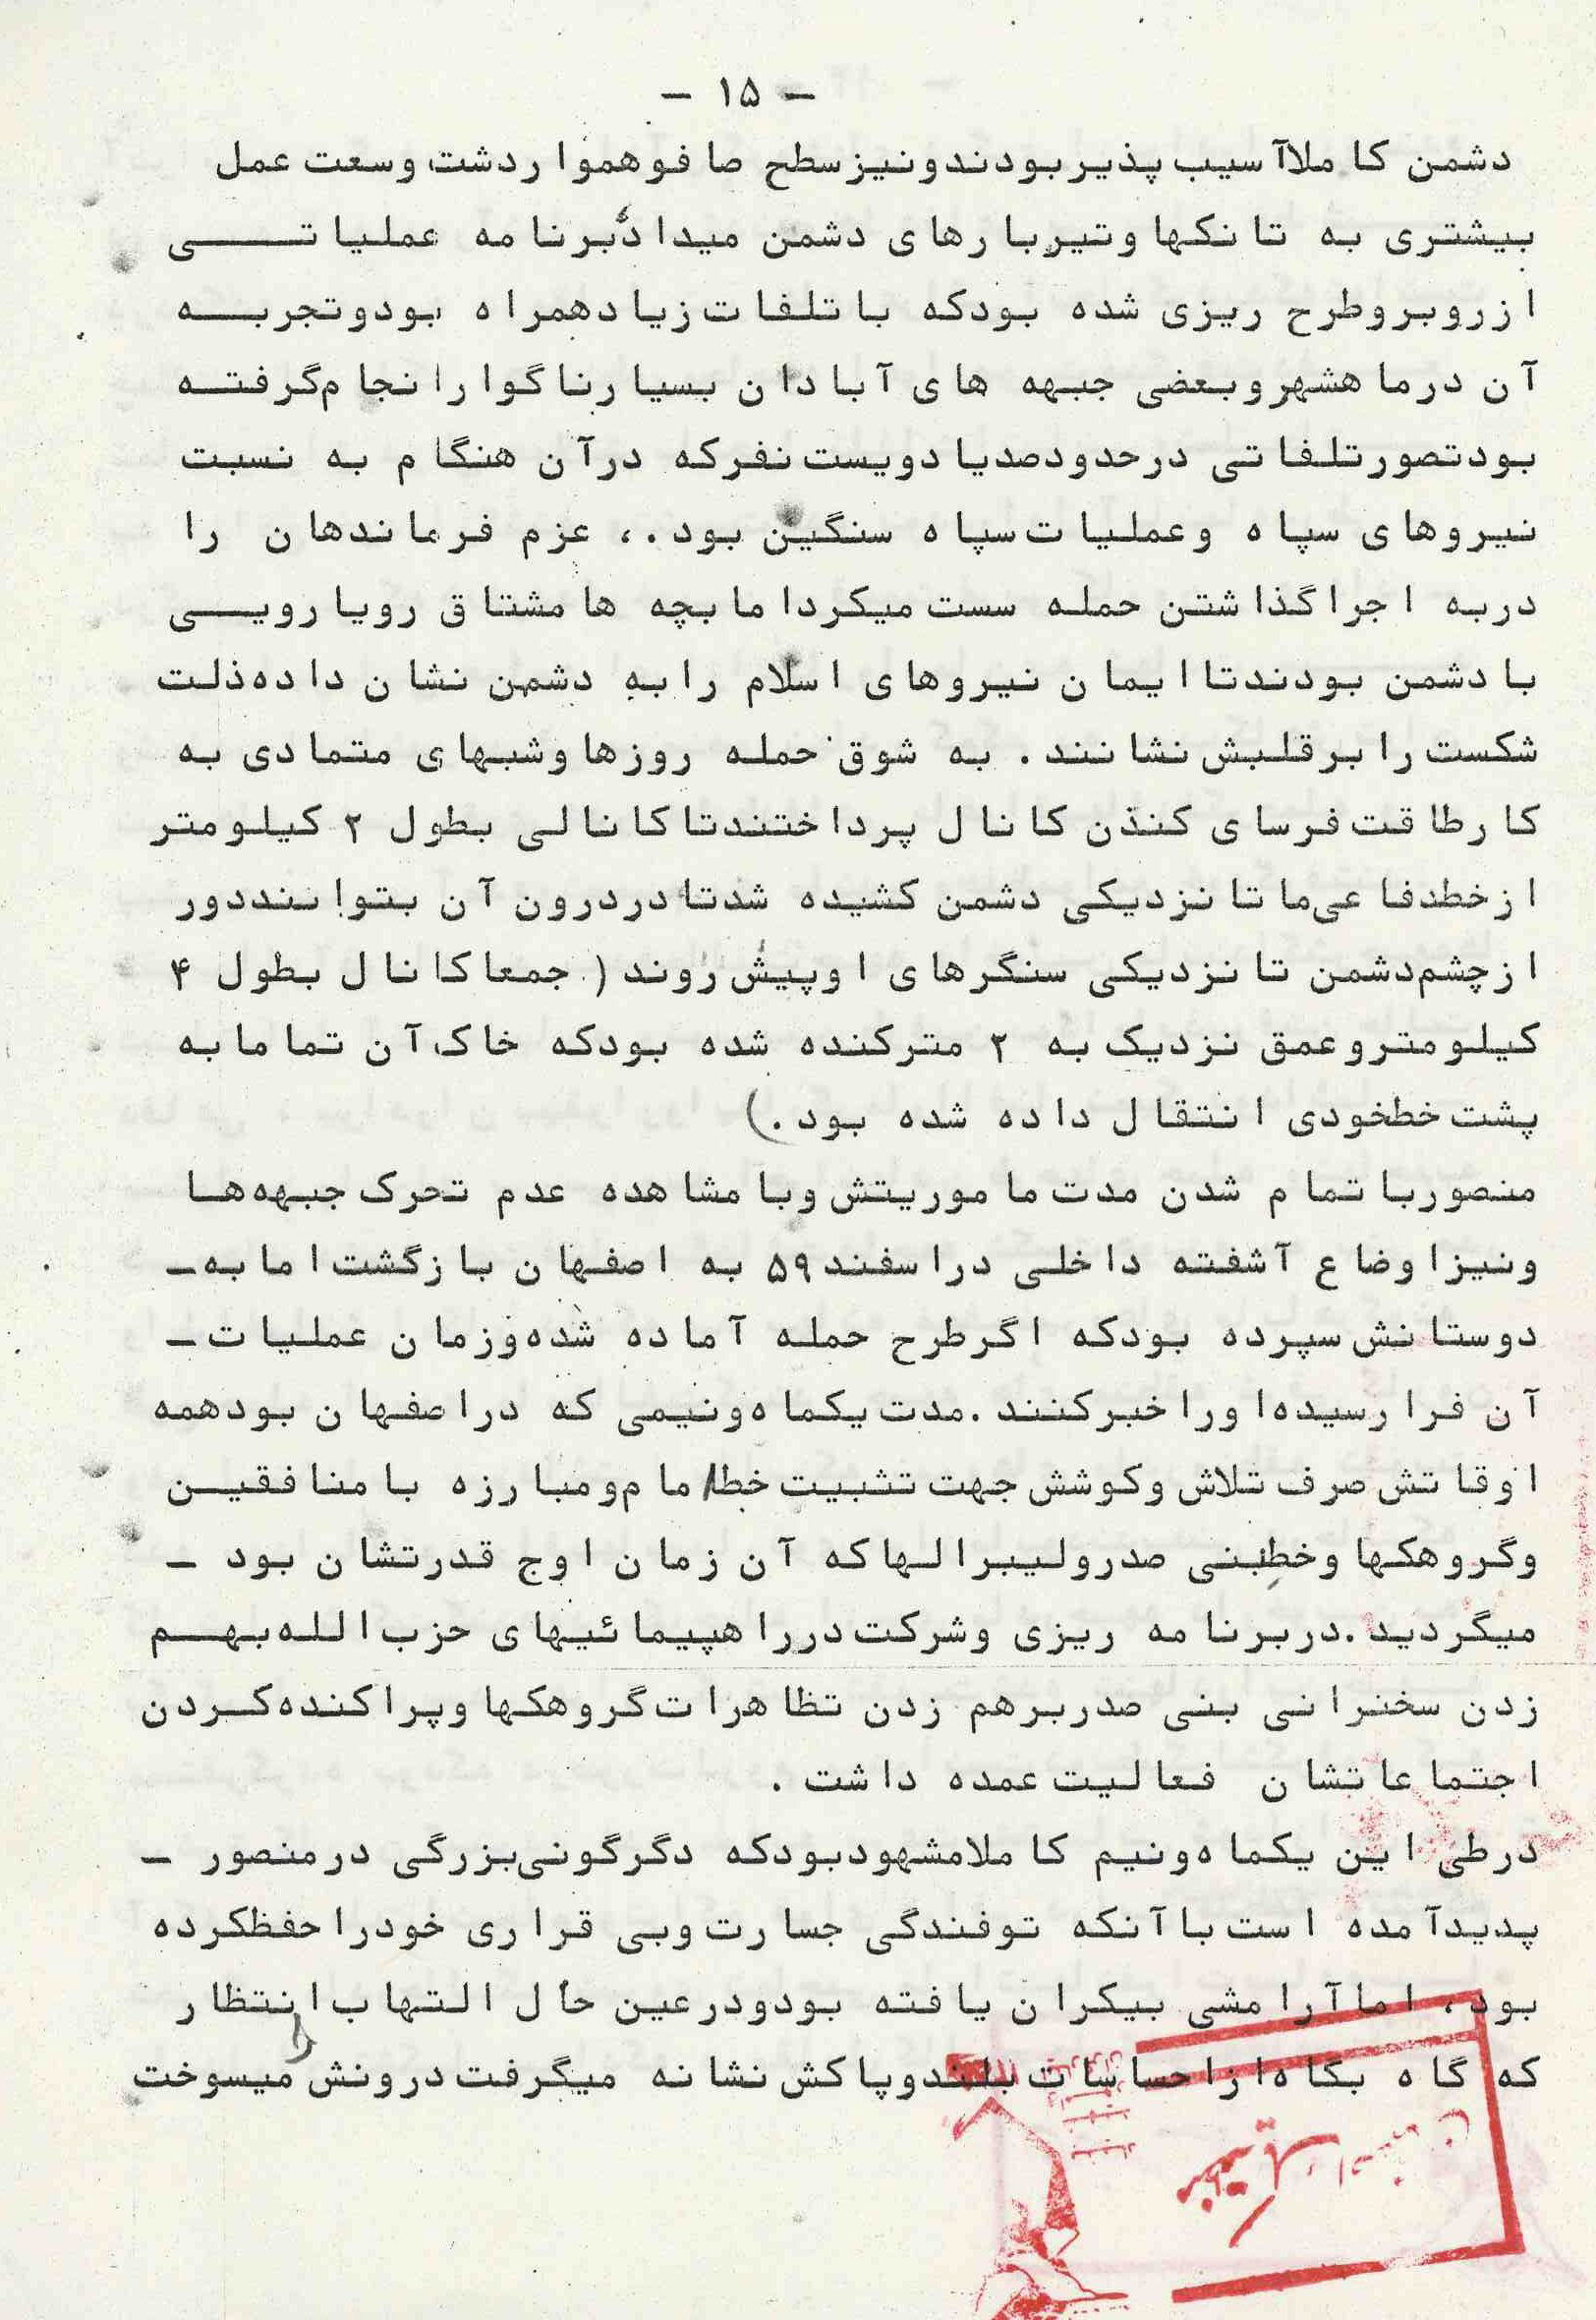 - ۱۵ -
دشمن کاملاآسیب پذیربودندونیزسطح صافوهمواردشت وسعت عمل
بیشتری به تانکها وتیربارهای دشمن میداد٬برنامه عملیاتـــــی
ازروبروطرح ریزی شده بودکه باتلفات زیادهمراه بودوتجربـــه
آن درماهشهروبعضی جبهه های آبادان بسیارناگوارانجام گرفتـه
بودتصورتلفاتی درحدودصدیادویست نفرکه درآن هنگام به نسبت
نیروهای سپاه وعملیات سپاه سنگین بود.، عزم فرماندهان را
دربه اجراگذاشتن حمله سست میکرداما بچه ها مشتاق رویارویـــی
با دشمن بودندتاایمان نیروهای اسلام رابه دشمن نشان داده ذلت
شکست رابرقلبش نشانند. به شوق حمله روزها وشبهای متمادی به
کارطاقت فرسای کندن کانال پرداختندتاکانالی بطول ۲ کیلومتر
ازخطدفاعی ما تانزدیکی دشمن کشیده شدتا دردرون آن بتوانند دور
ازچشم دشمن تا نزدیکی سنگرهای اوپیش روند ( جمعا کانال بطول ۴
کیلومتروعمق نزدیک به ۲ مترکنده شده بودکه خاک آن تماما به
پشت خطخودی انتقال داده شده بود.)
منصوربا تمام شدن مدت ماموریتش وبا مشاهده عدم تحرک جبهه هـا
ونیزاوضاع آشفته داخلی دراسفند ۵۹ به اصفهان بازگشت اما به-
دوستانش سپرده بودکه اگرطرح حمله آماده شده وزمان عملیات-
آن فرارسیده اوراخبرکنند.مدت یکماه ونیمی که دراصفهان بودهمه
اوقاتش صرف تلاش وکوشش جهت تثبیت خط امام ومبارزه با منافقیـن
وگروهکها وخطبنی صدرولیبرالها که آن زمان اوج قدرتشان بود -
میگردید.دربرنامه ریزی وشرکت درراهپیمائیهای حزب الله بهـــم
زدن سخنرانی بنی صدربرهم زدن تظاهرات گروهکها وپراکنده کـردن
اجتماعاتشان فعالیت عمده داشت .
درطی این یکماه ونیم کاملامشهودبودکه دگرگونی بزرگی درمنصور -
پدیدآمده است باآنکه توفندگی جسارت وبی قراری خودراحفظکرده
بود، اماآرامشی بیکران یافته بودودرعین حال التهاب انتظار را
که گاه بگاه ازاحساسات بلندوپاکش نشانه میگرفت درونش میسوخت